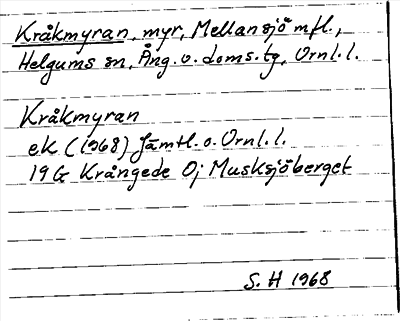 Kråkmyran, myr, Mellansjö mfl.,
Helgums sn, Ång. v. doms.tg, Vrnl.l.
Kråkmyran
ek (1968) Jämtl. o. Vrnl.l.
19 G Krångede 0j Musksjöberget
S. H 1968